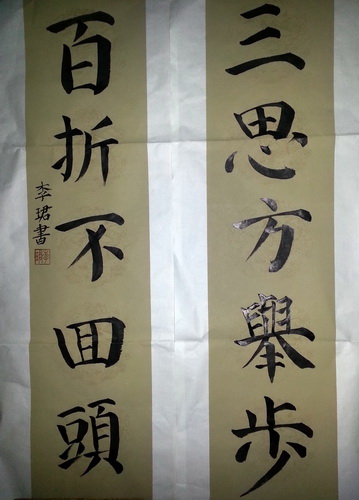 三思方舉步
百折不回頭
李珺書